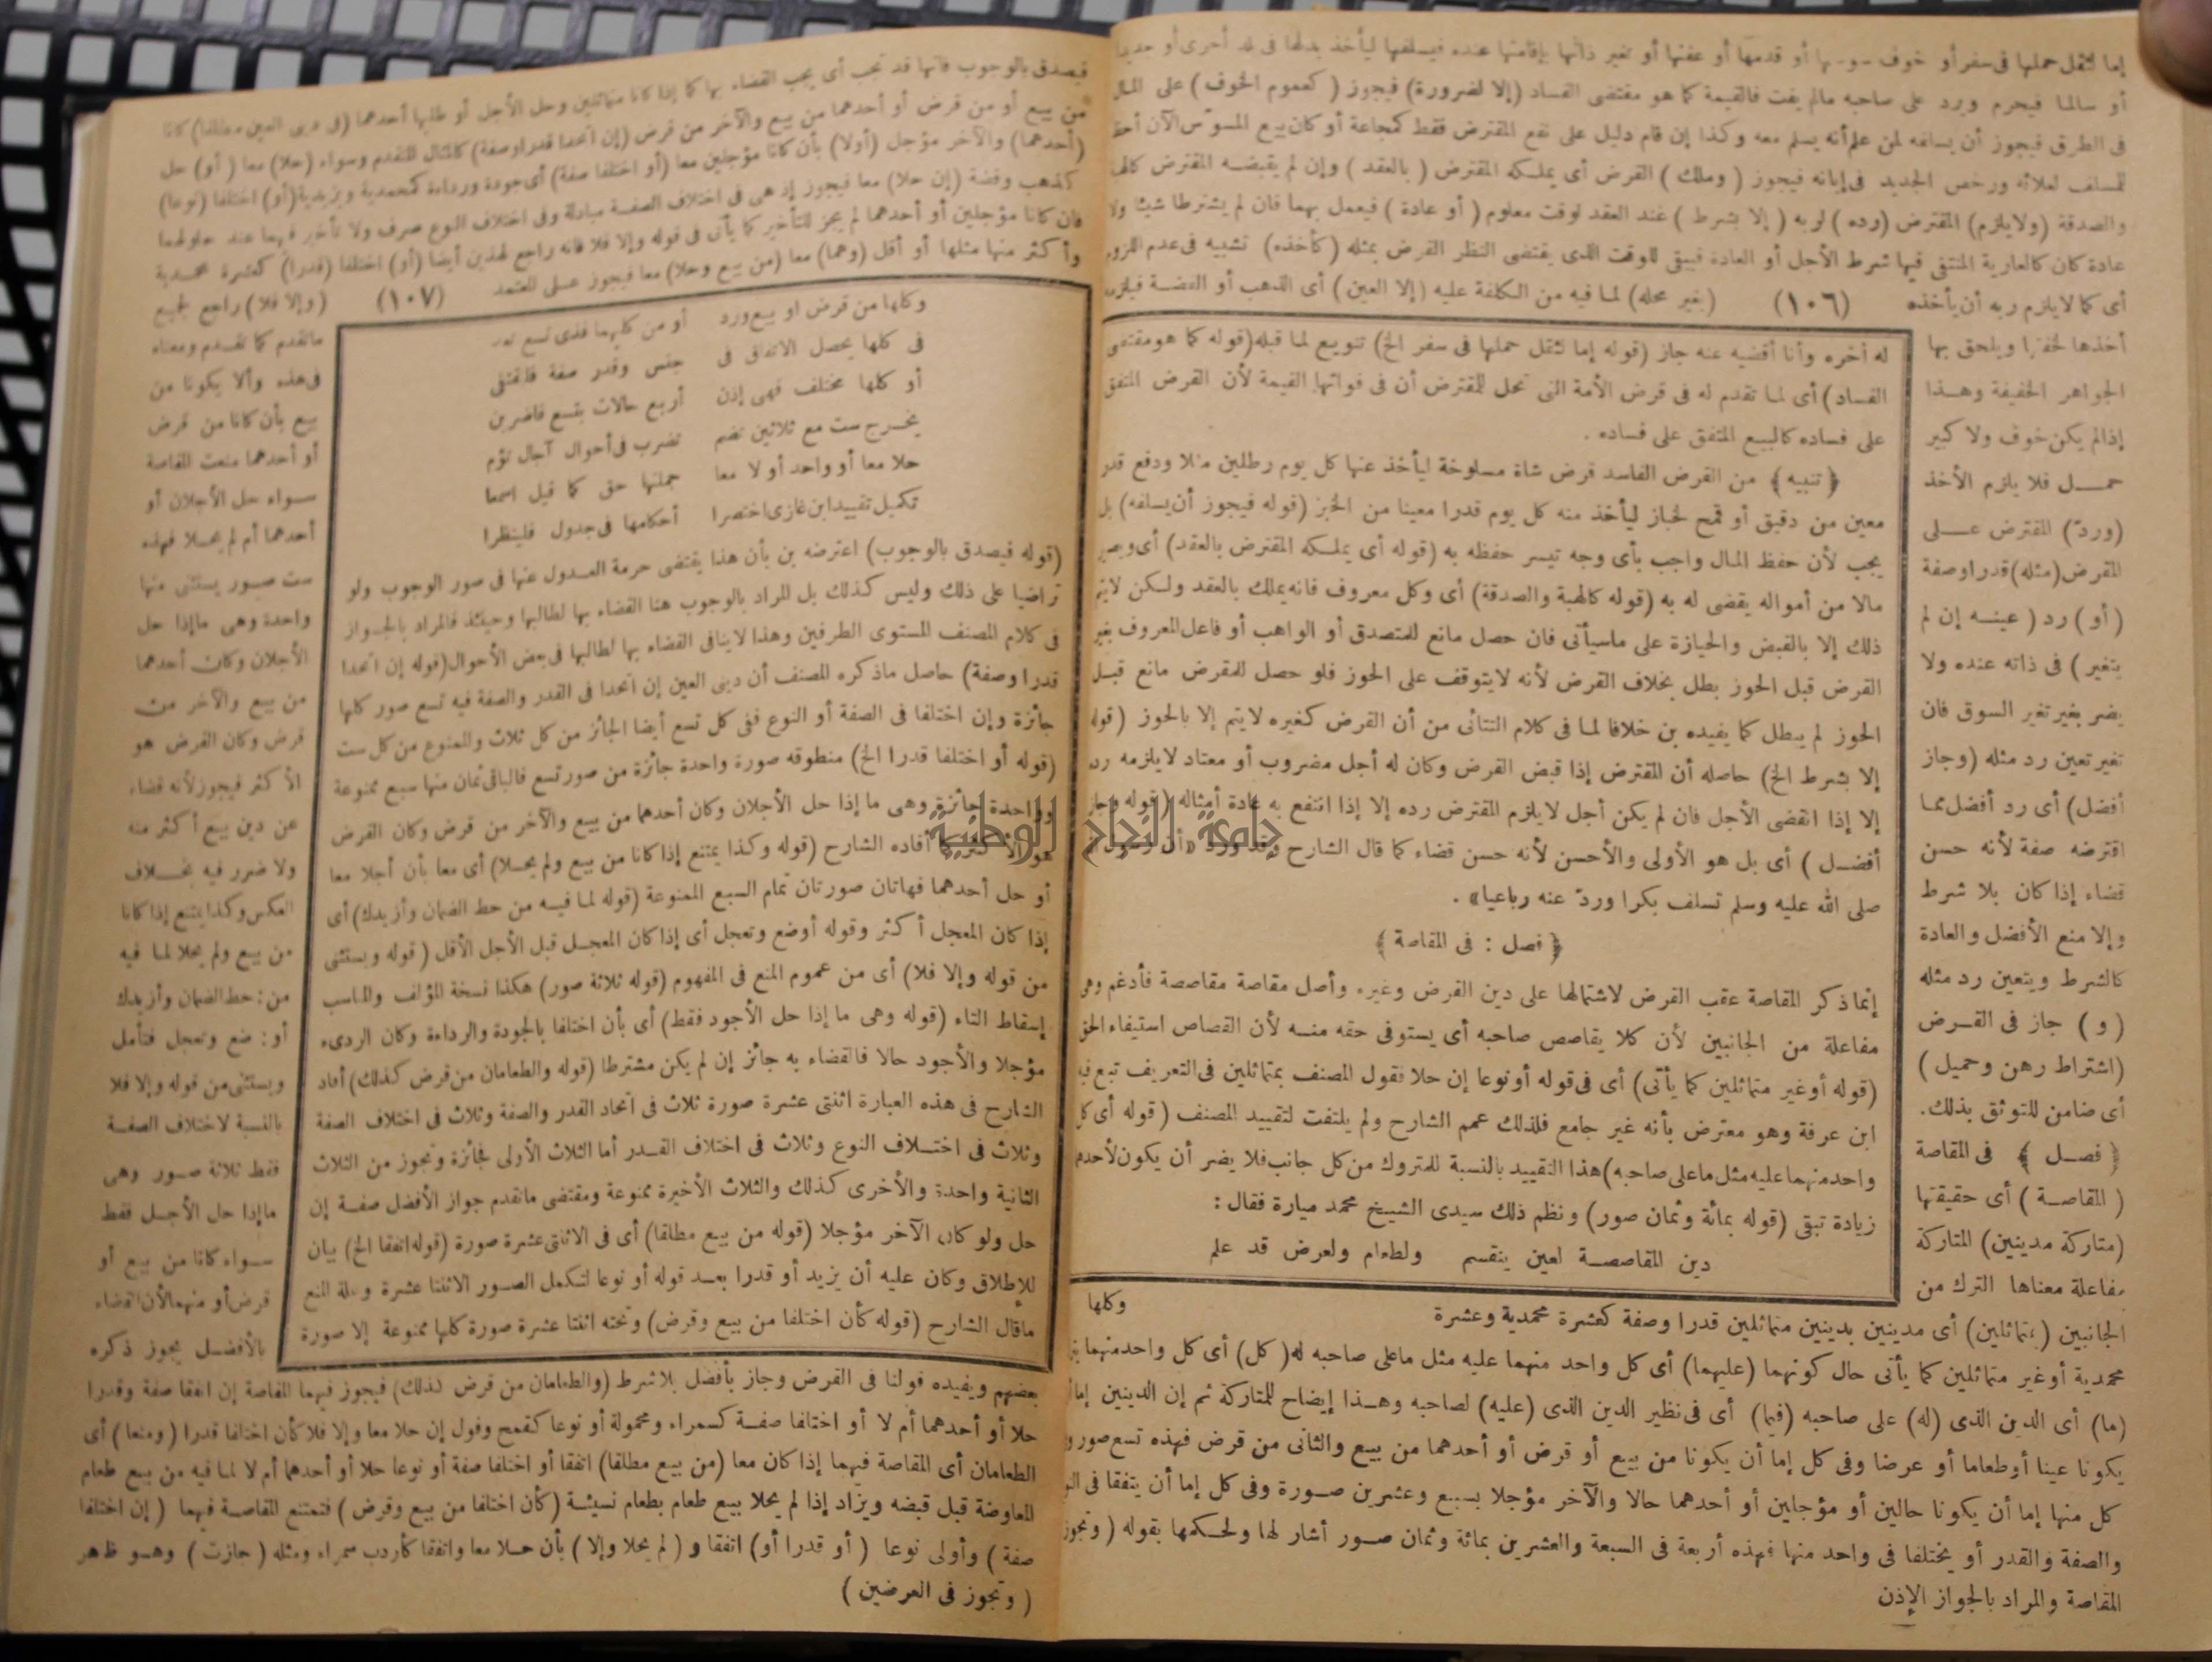 إما لثقل حملها في سفر أو خوف أو قدمها أو عفنها أو تغير ذاتها بإقامتها عنده فيسلفها ليأخذ بدلها في بلد أخرى أو جديدا
أو سالما فيحرم ويرد على صاحبه مالم يفت فالقيمة كما هو مقتضى الفساد (إلا لضرورة) فيجوز (كعموم الخوف) على المال
في الطرق فيجوز أن يسلفه لمن علم أنه يسلم معه وكذا إن قام دليل على نفع المقترض فقط كمجاعة أو كان بيع المسوّس الآن أحظ
للمسلف لغلائه ورخص الجديد في إبانه فيجوز (وملك) القرض أى يملكه المقترض (بالعقد) وإن لم يقبضه المقترض كالهبة
والصدقة (ولا يلزم) المقترض (رده) لربه (إلا بشرط) عند العقد لوقت معلوم (أو عادة) فيعمل بهما فان لم يشترطا شيئا ولا
عادة كان كالعارية المنتفى فيها شرط الأجل أو العادة فيبقى للوقت الذى يقتضى النظر القرض بمثله (كأخذه) تشبيه في عدم اللزوم
أى كما لا يلزم ربه أن يأخذه (١٠٦) (بغير محله) لما فيه من الكلفة عليه (إلا العين) أى الذهب أو الفضة فيلزم
أخذها لخفتها ويلحق بها
الجواهر الخفيفة وهذا
إذا لم يكن خوف ولا كبير
حمل فلا يلزم الأخذ
(وردّ) المقترض على
المقرض (مثله) قدرا وصفة
(أو) رد (عينه إن لم
يتغير) في ذاته عنده ولا
يضر بغير تغير السوق فان
تغير تعين رد مثله (وجاز
أفضل) أى رد أفضل مما
اقترضه صفة لأنه حسن
قضاء إذا كان بلا شرط
وإلا منع الأفضل والعادة
كالشرط ويتعين رد مثله
(و) جاز في القرض
(اشتراط رهن وحميل)
أى ضامن للتوثق بذلك.
﴿فصل﴾ في المقاصة
(المقاصة) أى حقيقتها
(متاركة مدينين) المتاركة
مفاعلة معناها الترك من
له آخره وأنا أقضيه عنه جاز (قوله إما لثقل حملها في سفر الخ) تنويع لما قبله (قوله كما هو مقتضى
الفساد) أى لما تقدم له في قرض الأمة التى تحل للمقترض أن في فواتها القيمة لأن القرض المتفق
على فساده كالبيع المتفق على فساده .
﴿تنبيه﴾ من القرض الفاسد قرض شاة مسلوخة ليأخذ عنها كل يوم رطلين مثلا ودفع قدر
معين من دقيق أو قمح لخباز ليأخذ منه كل يوم قدرا معينا من الخبز (قوله فيجوز أن يسلفه) بل
يجب لأن حفظ المال واجب بأى وجه تيسر حفظه به (قوله أى يملكه المقترض بالعقد) أى ويصير
مالا من أمواله يقضى له به (قوله كالهبة والصدقة) أى وكل معروف فانه يملك بالعقد ولكن لا يتم
ذلك إلا بالقبض والحيازة على ماسيأتى فان حصل مانع للمتصدق أو الواهب أو فاعل المعروف بغير
القرض قبل الحوز بطل بخلاف القرض لأنه لا يتوقف على الحوز فلو حصل للمقرض مانع قبل
الحوز لم يبطل كما يفيده بن خلافا لما في كلام التتائى من أن القرض كغيره لا يتم إلا بالحوز (قوله
إلا بشرط الخ) حاصله أن المقترض إذا قبض القرض وكان له أجل مضروب أو معتاد لا يلزمه رده
إلا إذا انقضى الأجل فان لم يكن أجل لا يلزم المقترض رده إلا إذا انتفع به عادة أمثاله (قوله وجاز
أفضل) أى بل هو الأولى والأحسن لأنه حسن قضاء كما قال الشارح وقد ورد «أن رسول
صلى الله عليه وسلم تسلف بكرا وردّ عنه رباعيا» .
﴿فصل : في المقاصة﴾
إنما ذكر المقاصة عقب القرض لاشتمالها على دين القرض وغيره وأصل مقاصة مقاصصة فأدغم وهى
مفاعلة من الجانبين لأن كلا يقاصص صاحبه أى يستوفى حقه منه لأن القصاص استيفاء الحق
(قوله أو غير متماثلين كما يأتى) أى في قوله أو نوعا إن حلا فقول المصنف بمتماثلين في التعريف تبع فيه
ابن عرفة وهو معترض بأنه غير جامع فلذلك عمم الشارح ولم يلتفت لتقييد المصنف (قوله أى كل
واحد منهما عليه مثل ما على صاحبه) هذا التقييد بالنسبة للمتروك من كل جانب فلا يضر أن يكون لأحدهما
زيادة تبقى (قوله بمائة وثمان صور) ونظم ذلك سيدى الشيخ محمد ميارة فقال :
دين المقاصصة لعين ينقسم ولطعام ولعرض قد علم
وكلها
الجانبين (بمتماثلين) أى مدينين بدينين متماثلين قدرا وصفة كعشرة محمدية وعشرة
محمدية أو غير متماثلين كما يأتى حال كونهما (عليهما) أى كل واحد منهما عليه مثل ما على صاحبه له (كل) أى كل واحد منهما
(ما) أى الدين الذى (له) على صاحبه (فيما) أى في نظير الدين الذى (عليه) لصاحبه وهذا إيضاح للمتاركة ثم إن الدينين إما أن
يكونا عينا أو طعاما أو عرضا وفي كل إما أن يكونا من بيع أو قرض أو أحدهما من بيع والثانى من قرض فهذه تسع صور و
كل منها إما أن يكونا حالين أو مؤجلين أو أحدهما حالا والآخر مؤجلا بسبع وعشرين صورة وفي كل إما أن يتفقا في النوع
والصفة والقدر أو يختلفا في واحد منها فهذه أربعة في السبعة والعشرين بمائة وثمان صور أشار لها ولحكمها بقوله (وتجوز
المقاصة والمراد بالجواز الإذن
فيصدق بالوجوب فانها قد تجب أى يجب القضاء بها كما إذا كانا متماثلين وحل الأجل أو طلبها أحدهما (في دينى العين مطلقا) كانا
من بيع أو من قرض أو أحدهما من بيع والآخر من قرض (إن اتحدا قدرا وصفة) كالمثال المتقدم وسواء (حلا) معا (أو) حل
(أحدهما) والآخر مؤجل (أولا) بأن كانا مؤجلين معا (أو اختلفا صفة) أى جودة ورداءة كمحمدية ويزيدية (أو) اختلفا (نوعا)
كذهب وفضة (إن حلا) معا فيجوز إذ هى في اختلاف الصفة مبادلة وفي اختلاف النوع صرف ولا تأخير فيهما عند حلولهما
فان كانا مؤجلين أو أحدهما لم يجز للتأخير كما يأتى في قوله وإلا فلا فانه راجع لهذين أيضا (أو) اختلفا (قدرا) كعشرة محمدية
وأكثر منها مثلها أو أقل (وهما) معا (من بيع وحلا) معا فيجوز على المعتمد (١٠٧) (وإلا فلا) راجع لجميع
ماتقدم كما تقدم ومعناه
في هذه وألا يكونا من
بيع بأن كانا من قرض
أو أحدهما منعت المقاصة
سواء حل الأجلان أو
أحدهما أم لم يحلا فهذه
ست صور يستثنى منها
واحدة وهى ما إذا حل
الأجلان وكان أحدهما
من بيع والآخر من
قرض وكان القرض هو
الأكثر فيجوز لأنه قضاء
عن دين بيع أكثر منه
ولا ضرر فيه بخلاف
العكس وكذا يمتنع إذا كانا
من بيع ولم يحلا لما فيه
من : حط الضمان وأزيدك
أو : ضع وتعجل فتأمل
ويستثنى من قوله وإلا فلا
بالنسبة لاختلاف الصفة
فقط ثلاثة صور وهى
ما إذا حل الأجل فقط
سواء كانا من بيع أو
قرض أو منهما لأن القضاء
بالأفضل يجوز ذكره
وكلها من قرض او بيع ورد أو من كليهما فذى تسع تعد
في كلها يحصل الاتفاق في جنس وقدر صفة فلتقتفى
أو كلها مختلف فهى إذن أربع حالات بتسع فاضربن
يخرج ست مع ثلاثين تضم تضرب في أحوال آجال تؤم
حلا معا أو واحد أو لا معا جملتها حق كما قيل اسمعا
تكميل تقييد ابن غازى اختصرا أحكامها في جدول فلينظرا
(قوله فيصدق بالوجوب) اعترضه بن بأن هذا يقتضى حرمة العدول عنها في صور الوجوب ولو
تراضيا على ذلك وليس كذلك بل المراد بالوجوب هنا القضاء بها لطالبها وحينئذ فالمراد بالجواز
في كلام المصنف المستوى الطرفين وهذا لا ينافى القضاء بها لطالبها في بعض الأحوال (قوله إن اتحدا
قدرا وصفة) حاصل ماذكره المصنف أن دينى العين إن اتحدا في القدر والصفة فيه تسع صور كلها
جائزة وإن اختلفا في الصفة أو النوع ففى كل تسع أيضا الجائز من كل ثلاث والممنوع من كل ست
(قوله أو اختلفا قدرا الخ) منطوقه صورة واحدة جائزة من صور تسع فالباقى ثمان منها سبع ممنوعة
وواحدة جائزة وهى ما إذا حل الأجلان وكان أحدهما من بيع والآخر من قرض وكان القرض
هو الأكثر كما أفاده الشارح (قوله وكذا يمتنع إذا كانا من بيع ولم يحلا) أى معا بأن أجلا معا
أو حل أحدهما فهاتان صورتان تمام السبع الممنوعة (قوله لما فيه من حط الضمان وأزيدك) أى
إذا كان المعجل أكثر وقوله أو ضع وتعجل أى إذا كان المعجل قبل الأجل الأقل (قوله ويستثنى
من قوله وإلا فلا) أى من عموم المنع في المفهوم (قوله ثلاثة صور) هكذا نسخة المؤلف والمناسب
إسقاط التاء (قوله وهى ما إذا حل الأجود فقط) أى بأن اختلفا بالجودة والرداءة وكان الردىء
مؤجلا والأجود حالا فالقضاء به جائز إن لم يكن مشترطا (قوله والطعامان من قرض كذلك) أفاد
الشارح في هذه العبارة اثنتى عشرة صورة ثلاث في اتحاد القدر والصفة وثلاث في اختلاف الصفة
وثلاث في اختلاف النوع وثلاث في اختلاف القدر أما الثلاث الأولى فجائزة وتجوز من الثلاث
الثانية واحدة والأخرى كذلك والثلاث الأخيرة ممنوعة ومقتضى ماتقدم جواز الأفضل صفة إن
حل ولو كان الآخر مؤجلا (قوله من بيع مطلقا) أى في الاثنتى عشرة صورة (قوله اتفقا الخ) بيان
للإطلاق وكان عليه أن يزيد أو قدرا بعد قوله أو نوعا لتكمل الصور الاثنتا عشرة وعلة المنع
ماقال الشارح (قوله كأن اختلفا من بيع وقرض) وتحته اثنتا عشرة صورة كلها ممنوعة إلا صورة
بعضهم ويفيده قولنا في القرض وجاز بأفضل بلا شرط (والطعامان من قرض كذلك) فيجوز فيهما المقاصة إن اتفقا صفة وقدرا
حلا أو أحدهما أم لا أو اختلفا صفة كسمراء ومحمولة أو نوعا كقمح وفول إن حلا معا وإلا فلا كأن اختلفا قدرا (ومنعا) أى
الطعامان أى المقاصة فيهما إذا كان معا (من بيع مطلقا) اتفقا أو اختلفا صفة أو نوعا حلا أو أحدهما أم لا لما فيه من بيع طعام
المعاوضة قبل قبضه ويزاد إذا لم يحلا بيع طعام بطعام نسيئة (كأن اختلفا من بيع وقرض) فتمتنع المقاصة فيهما (إن اختلفا
صفة) وأولى نوعا (أو قدرا أو) اتفقا و (لم يحلا وإلا) بأن حلا معا واتفقا كأردب سمراء ومثله (جازت) وهو ظاهر
(وتجوز في العرضين)
جامعة النجاح الوطنية